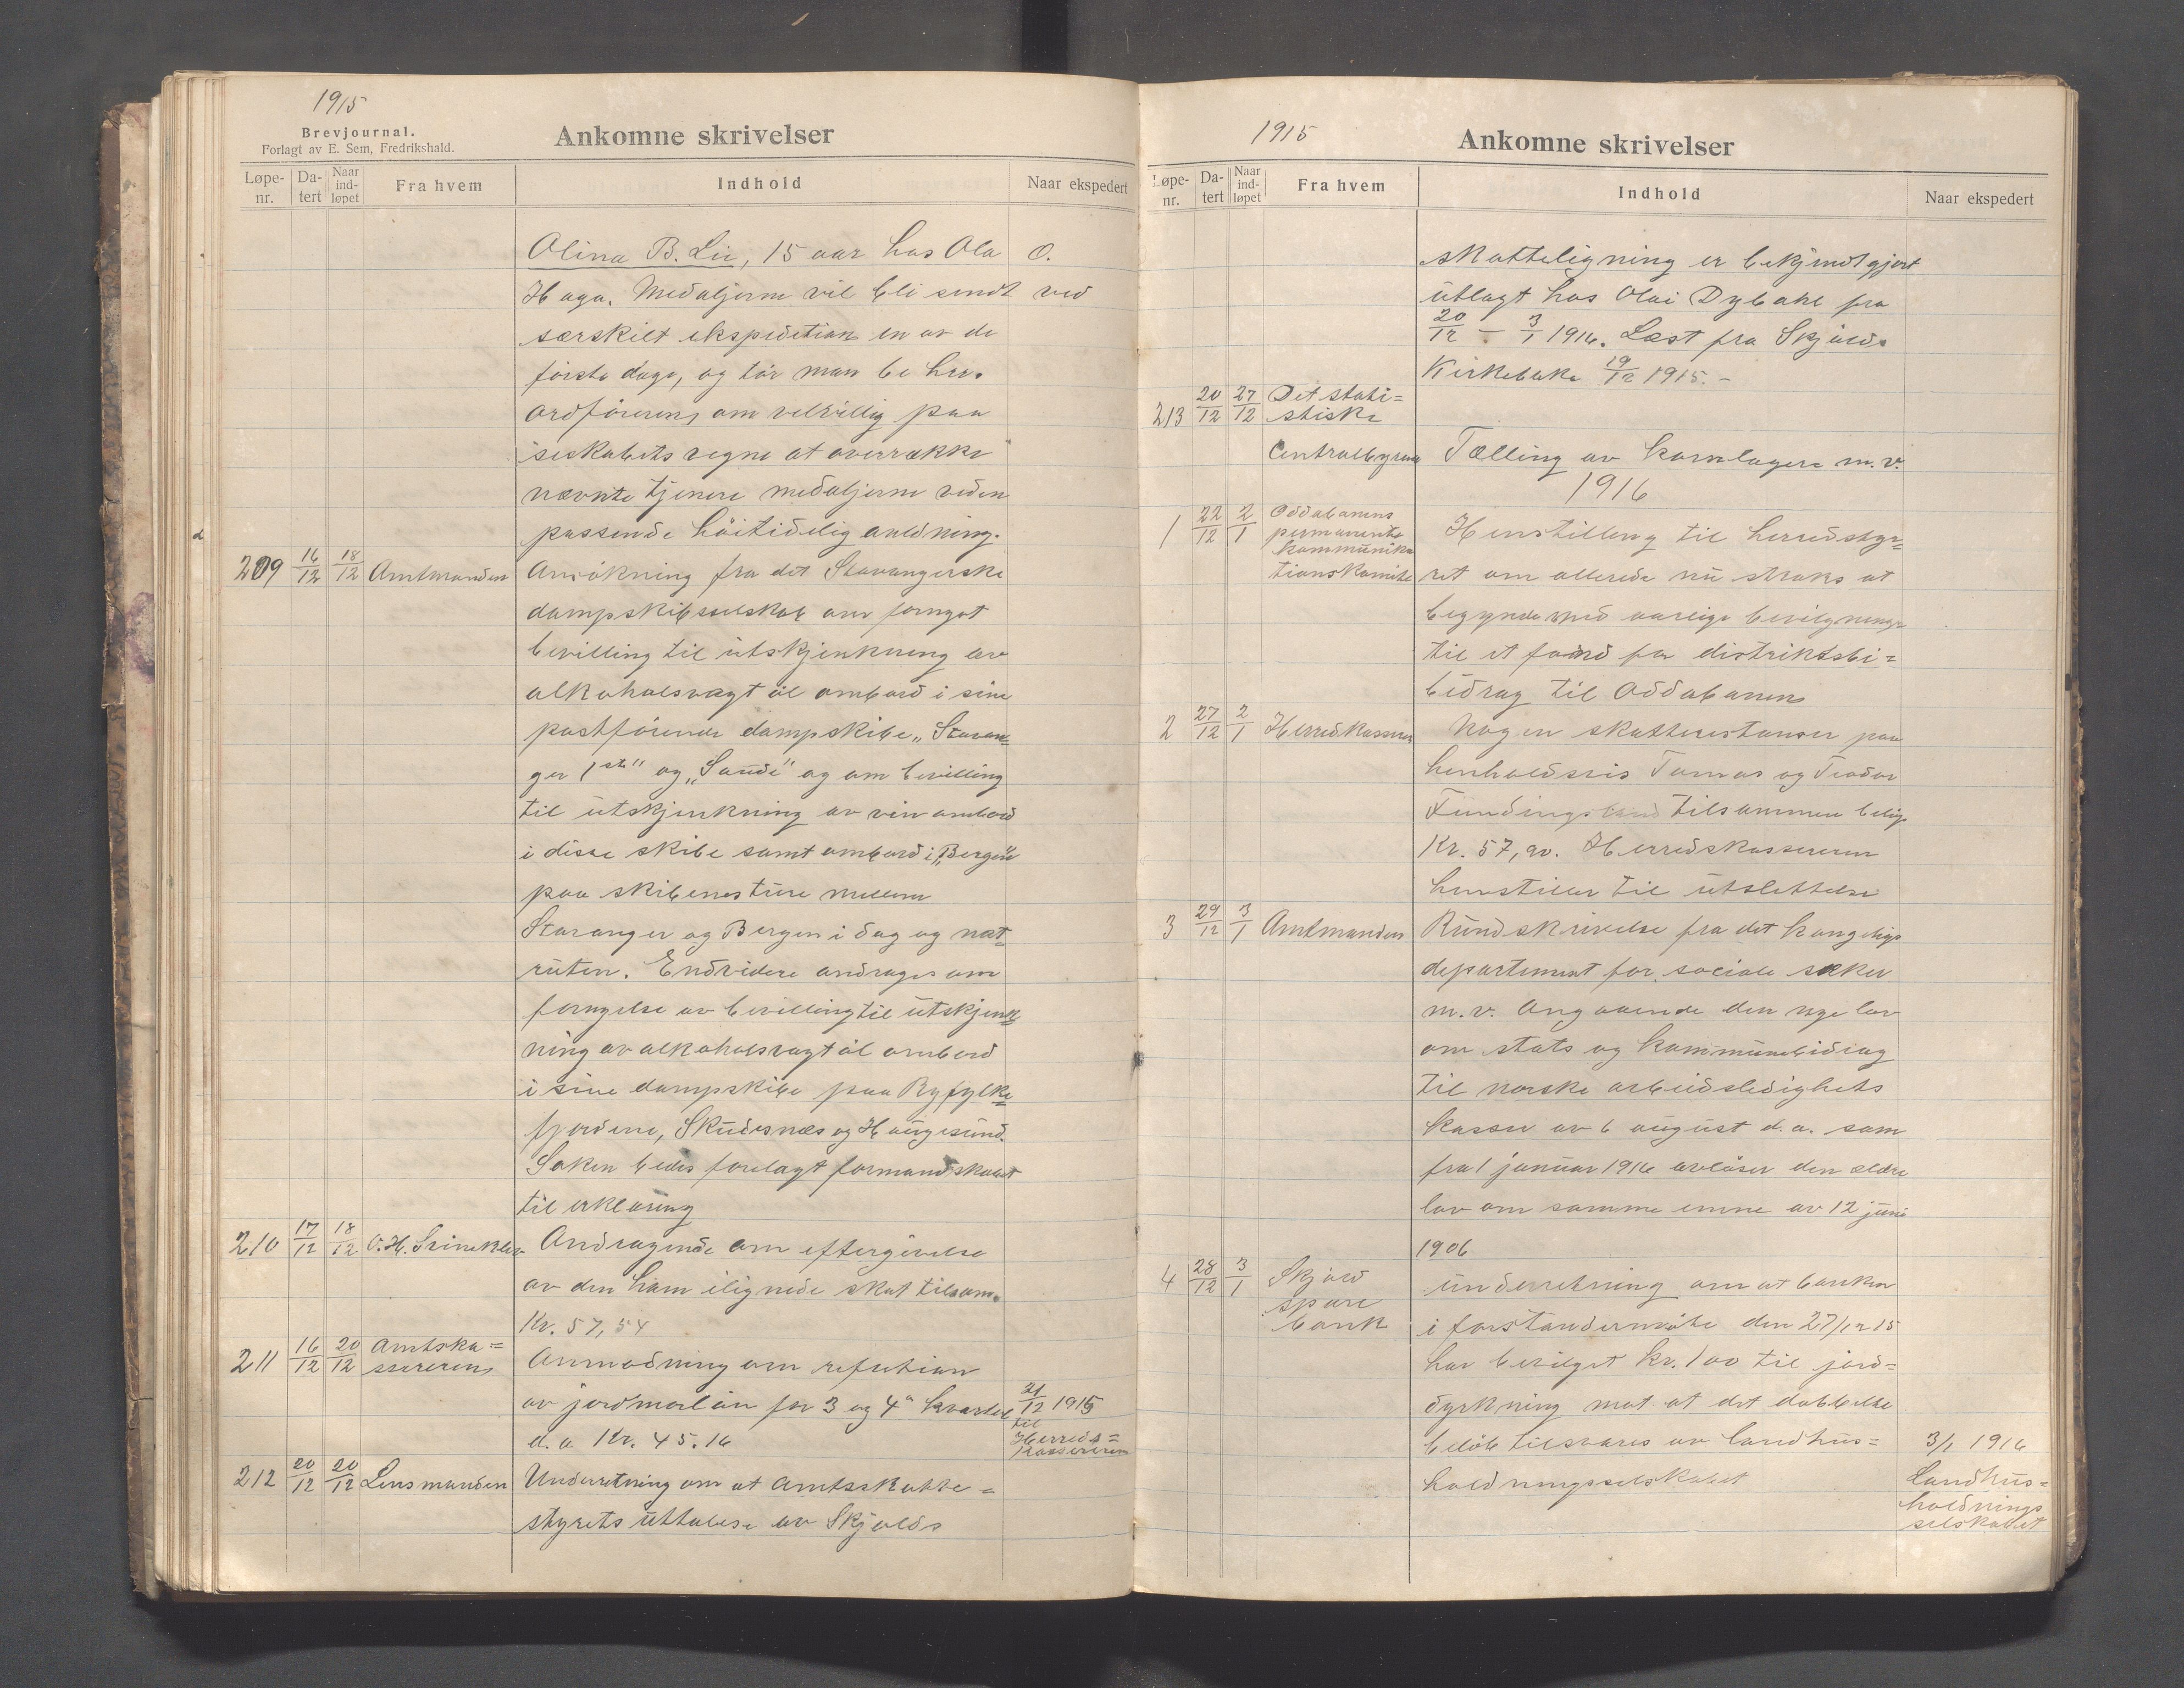 1915
Brevjournal.
Forlagt av E. Sem, Fredrikshald.
Ankomne skrivelser
Løpe-nr. Da-tert Naar ind-løpet Fra hvem Indhold Naar ekspedert
Olina B. Lie, 15 aar hos Ola O.
Haga. Medaljerne vil bli sendt ved
særskilt ekspedition en av de
første dage, og tør man be hrr.
ordføreren, om velvillig paa
selskabets vegne at overrække
nævnte tjenere medaljerne ved en
passende høitidelig anledning.
209 16/12 18/12 Amtmanden Ansøkning fra det Stavangerske
dampskibsselskab om fornyet
bevilling til utskjenkning av
alkoholsvagt øl ombord i sine
postførende dampskibe „Stavan-
ger 1ste" og „Saude" og om bevilling
til utskjenkning av vin ombord
i disse skibe samt ombord i „Bergen"
paa skibenes ture mellem
Stavanger og Bergen i dag og nat-
ruten. Endvidere andrages om
fornyelse av bevilling til utskjenk-
ning av alkoholsvagt øl ombord
i sine dampskibe paa Ryfylke-
fjordene, Skudesnæs og Haugesund.
Saken bedes forelagt formandskabet
til erklæring
210 17/12 18/12 O. H. Andragende om eftergivelse
av den ham ilignede skat tilsam.
Kr. 57,54
211 16/12 20/12 Amtska=
ssereren, Anmodning om refution
av jordmorløn for 3 og 4de kvartal 21/12 1915
d.a Kr. 45.16 til Herreds=
kassereren
212 20/12 20/12 Lensmanden Underretning om at Amtsskatte=
styrets uttalelse av Skjolds
1915
Ankomne skrivelser
Løpe-nr. Da-tert Naar ind-løpet Fra hvem Indhold Naar ekspedert
skatteligning er bekjendtgjort
utlagt hos Olai Dybahl fra
20/12 - 3/1 1916. Læst fra Skjolds
Kirkebakke 19/12 1915. -
213 20/12 27/12 Det stati=
stiske
Centralbyraa Tælling av kornlagere m.v.
1916
1 22/12 2/1 Oddabanens
permanente
kommunika
tionskomite Henstilling til herredsty-
ret om allerede nu straks at
begynde med aarlige bevilgninger
til et fond for distriktsbi=
bidrag til Oddabanen
2 27/12 2/1 Herredskasseren Nogen skatterestanser paa
henholdsvis Tomas og Teodor
Fundingsland tilsammen beløp
Kr. 57,20. Herredskassereren
henstiller til utslettelse
3 29/12 3/1 Amtmanden Rundskrivelse fra det kongelige
departement for sociale saker
m.v. Angaaende den nye lov
om stats og kommunebidrag
til norske arbeidsledighets
kasser av 6 august d.a. som
fra 1 januar 1916 avløser den ældre
lov om samme emne av 12 juni
1906
4 28/12 3/1 Skjold
spare
bank underretning om at banken
i forstandermøte den 27/12 15
har bevilget kr. 100 til jord=
dyrkning mot at det dobbelte
beløb tilsvares av landhus= 3/1 1916
holdningsselskabet Landhus=
holdnings
selskabet